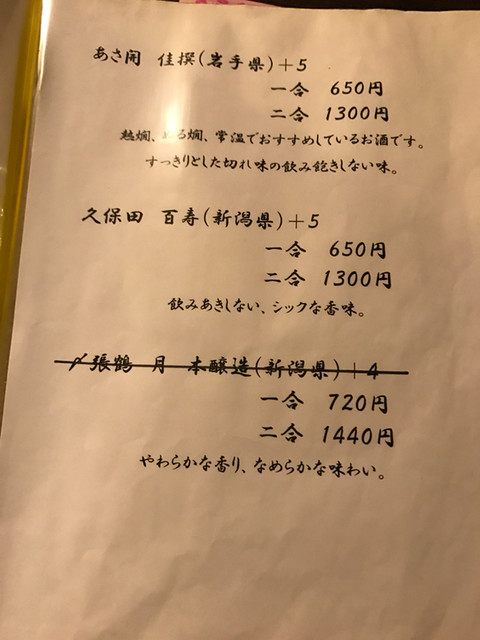 あさ開 佳撰(岩手県)+5
一合 650円
二合 1300円
熱燗、ぬる燗、常温でおすすめしているお酒です。
すっきりとした切れ味の飲み飽きしない味。
久保田 百寿(新潟県)+5
一合 650円
二合 1300円
飲みあきしない、シックな香味。
〆張鶴 月 本醸造(新潟県)+4
一合 720円
二合 1440円
やわらかな香り、なめらかな味わい。